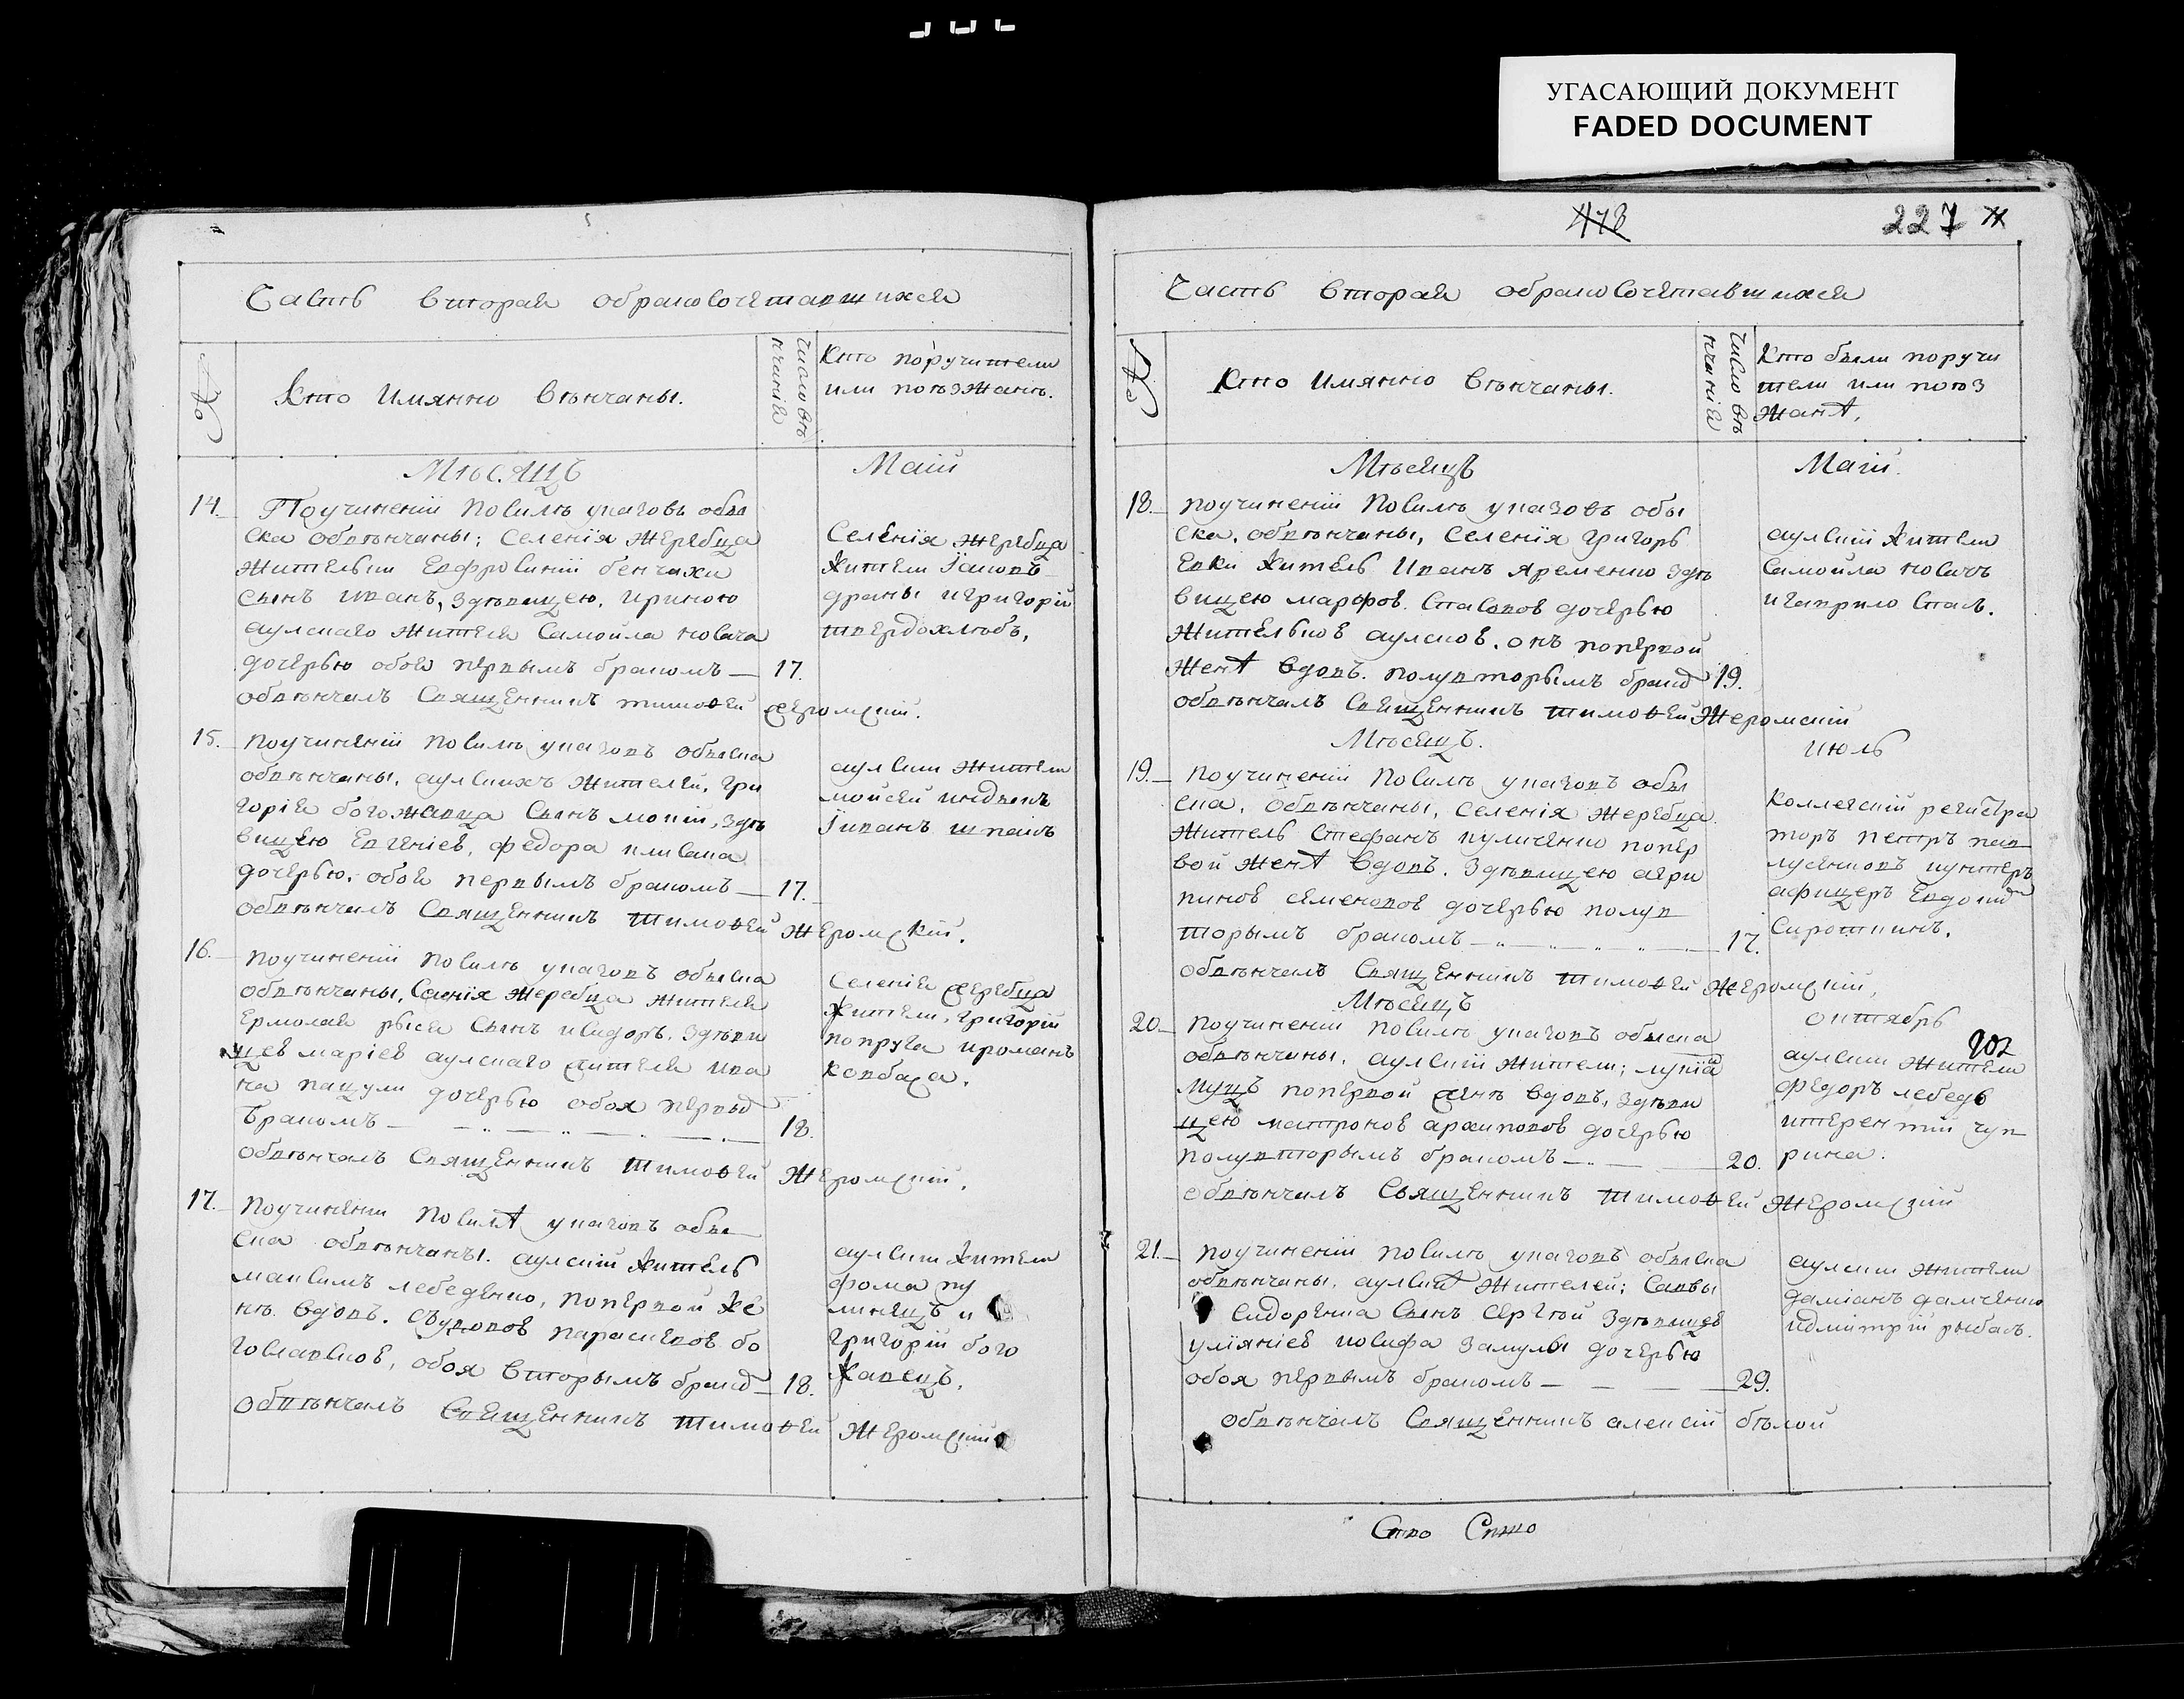 УГАСАЮЩИЙ ДОКУМЕНТ
FADED DOCUMENT
Часть вторая обракосочетавшихся
№
Кто имянно венчаны.
Число вѣнчанія
Кто поручители
или поѣзжанѣ.
Мѣсяцъ Маій
14. Поучиненіи посилѣ указовъ обы
ска обвѣнчаны; селенія жеребца
жительки Евфросиніи бенчихи
сынъ иванъ, здѣвицею, ириною
аулскаго жителя Самойла новача
дочерью обоя первымъ бракомъ — 17.
обвѣнчалъ Священникъ тимоѳей жеромскій.
Селенія жеребца
жители Іаковъ
драны игригорій
твердохлѣбъ,
15. поучиненіи посилѣ указовъ обыска
обвѣнчаны, аулскихъ жителей, гри
горія богожавца сынъ мокій, здѣ
вицею Евгеніев, федора
дочерью, обоя первымъ бракомъ — 17.
обвѣнчалъ Священникъ тимоѳей жеромскій.
аулскии жители
мойсей индыкъ
іиванъ шпакъ
16. поучиненіи посилѣ указовъ обыска
обвѣнчаны, Селенія жеребца жителя
Ермолая рыся сынъ исидоръ, здѣви
цев маріев аулскаго жителя ива
на пацули дочерью обоя первы
бракомъ — 18.
обвѣнчалъ Священникъ тимоѳей жеромскій.
Селенія жеребца
жители, григорій
попруга ироманъ
ковбаса.
17. поучинении посилѣ указовъ обы
ска обвѣнчаны. аулскій житель
максимъ лебеденко, попервой же
нѣ вдовъ. свдовов параскевов бо
гославсков, обоя вторымъ брако — 18.
обвѣнчалъ Священникъ тимоѳей жеромскій
аулскии жители
фома ту
линецъ и
григорій бого
жавецъ.
478
227
Часть вторая обракосочетавшихся
№
Кто имянно венчаны.
Число вѣнчанія
Кто были поручи
тели или поѣз
жанѣ,
Мѣсяцъ Маій.
18. поучиненіи посилѣ указовъ обы
ска, обвѣнчаны, селенія григорь
евки житель иванъ яременко здѣ
вицею марфов. Стасовов дочерью
жительков аулсков, онъ попервой
женѣ вдовъ. полувторымъ брако 19.
обвѣнчалъ Священникъ тимоѳей жеромскій
аулскіи жители
Самойла новачъ
игаврило стась.
Мѣсяцъ. июль
19. поучиненіи посилѣ указовъ обы
ска, обвѣнчаны, селенія жеребца
житель стефанъ куличенко попер
вой женѣ вдовъ, здѣвицею агри
пинов семеновов дочерью полув
торымъ бракомъ — 17.
обвѣнчалъ Священникъ тимоѳей жеромскій,
коллегскій регистра
торъ петръ пав
лусенковъ иунтеръ
афицеръ Евдоки
Сироткинъ.
Мѣсяцъ октябрь
20. поучиненіи посилѣ указовъ обыска
обвѣнчаны, аулскіи жители; лукіа
муцъ попервой женѣ вдовъ, здѣви
цею матронов архиповов дочерью
полувторымъ бракомъ — 20.
обвѣнчалъ Священникъ тимоѳей жеромскій
202
аулскии жители
федоръ лебедь
итерентій чуп
рина.
21. поучиненіи посилѣ указовъ обыска
обвѣнчаны, аулскіѣ жителей; Савы
Сидоренка сынъ сергѣй здѣвицев
уліяніев иосифа замулы дочерью
обоя первымъ бракомъ — 29.
обвѣнчалъ Священникъ алексій бѣлой
аулскии жители
даміанъ дамченко
идмитрій рыбась.